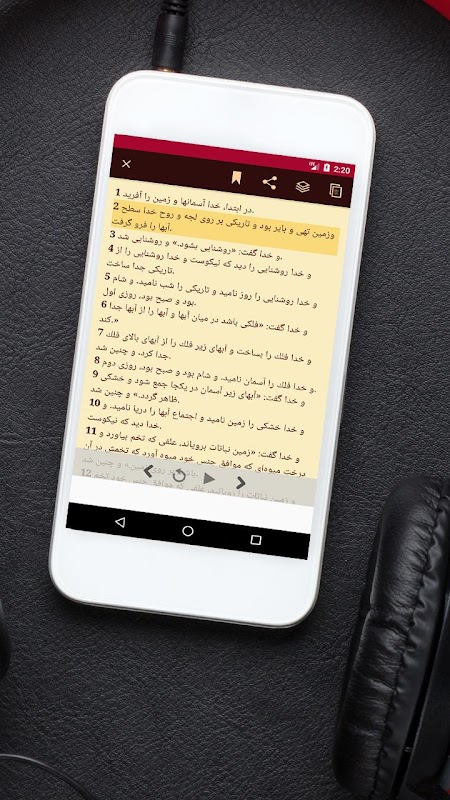 2:20
1 در ابتدا، خدا آسمانها و زمین را آفرید.
2 وزمین تهی و بایر بود و تاریکی بر روی لجه و روح خدا سطح
آبها را فرو گرفت.
3 و خدا گفت: «روشنایی بشود.» و روشنایی شد.
4 و خدا روشنایی را دید که نیکوست و خدا روشنایی را از
تاریکی جدا ساخت.
5 و خدا روشنایی را روز نامید و تاریکی را شب نامید. و شام
بود و صبح بود، روزی اول.
6 و خدا گفت: «فلکی باشد در میان آبها و آبها را از آبها جدا
کند.»
7 و خدا فلک را بساخت و آبهای زیر فلک را از آبهای بالای فلک
جدا کرد. و چنین شد.
8 و خدا فلک را آسمان نامید. و شام بود و صبح بود، روزی دوم.
9 و خدا گفت: «آبهای زیر آسمان در یکجا جمع شود و خشکی
ظاهر گردد.» و چنین شد.
10 و خدا خشکی را زمین نامید و اجتماع آبها را دریا نامید. و
خدا دید که نیکوست.
11 و خدا گفت: «زمین نباتات برویاند، علفی که تخم بیاورد و
درخت میوه‌ای که موافق جنس خود میوه آورد که تخمش در آن
باشد، بر روی زمین.» و چنین شد.
12 و زمین نباتات را رویانید، علفی که موافق جنس خود تخم